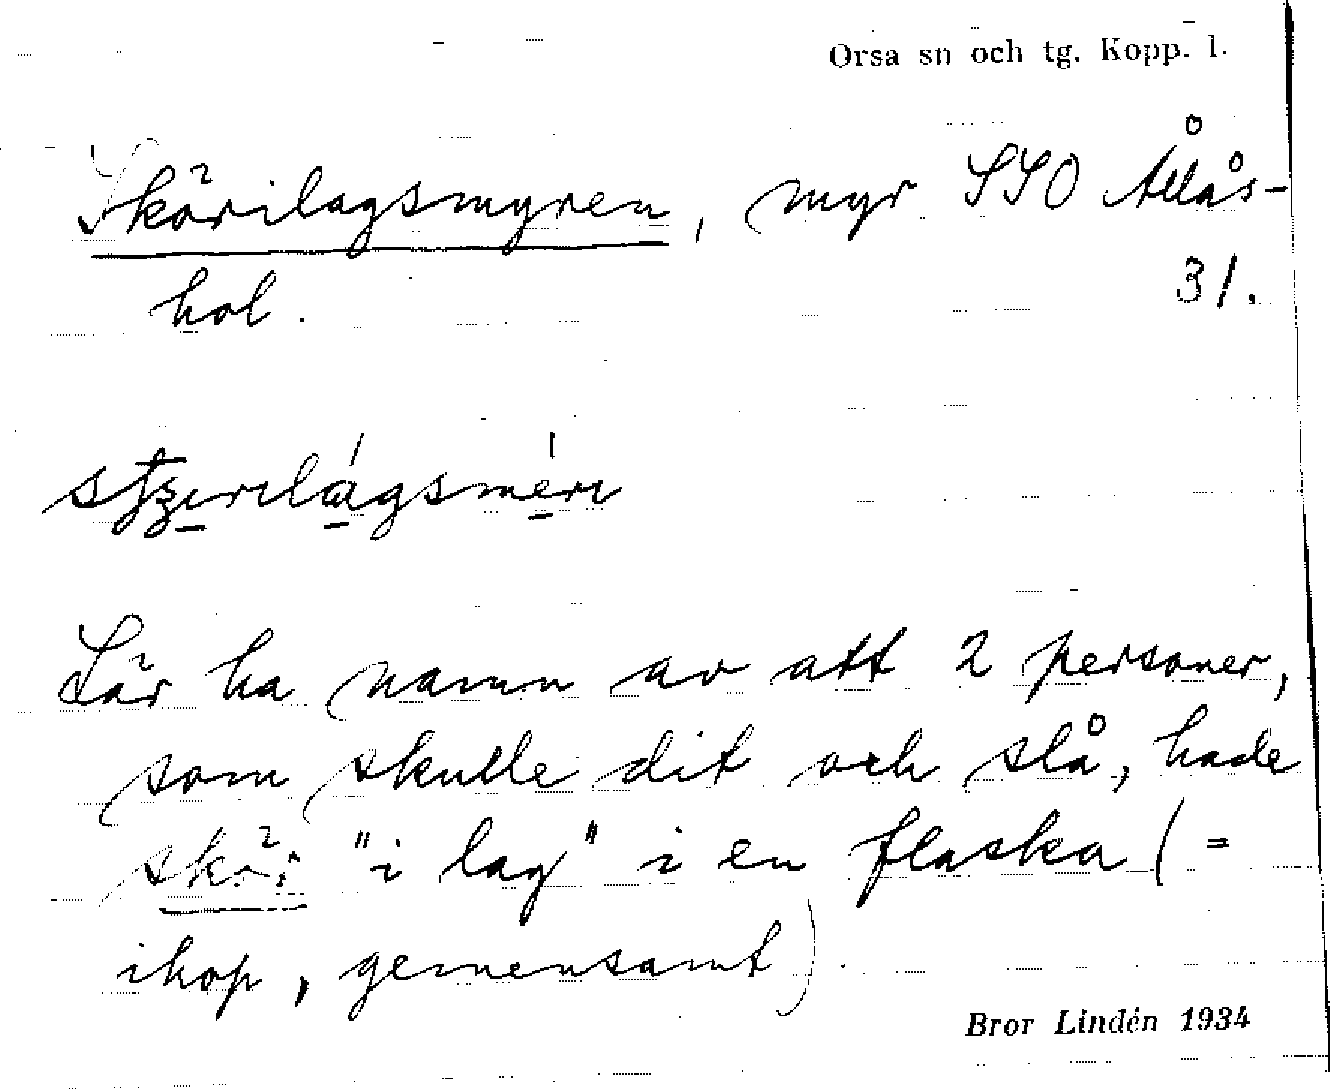 Orsa sn och tg. Kopp. l.
Skörilagsmyren, myr SSO Ållås-
hol. 31.
Lär ha namn av att 2 personer,
som skulle dit och slå, hade
"i lag" i en flaska (=
ihop, gemensamt).
Bror Lindén 1934